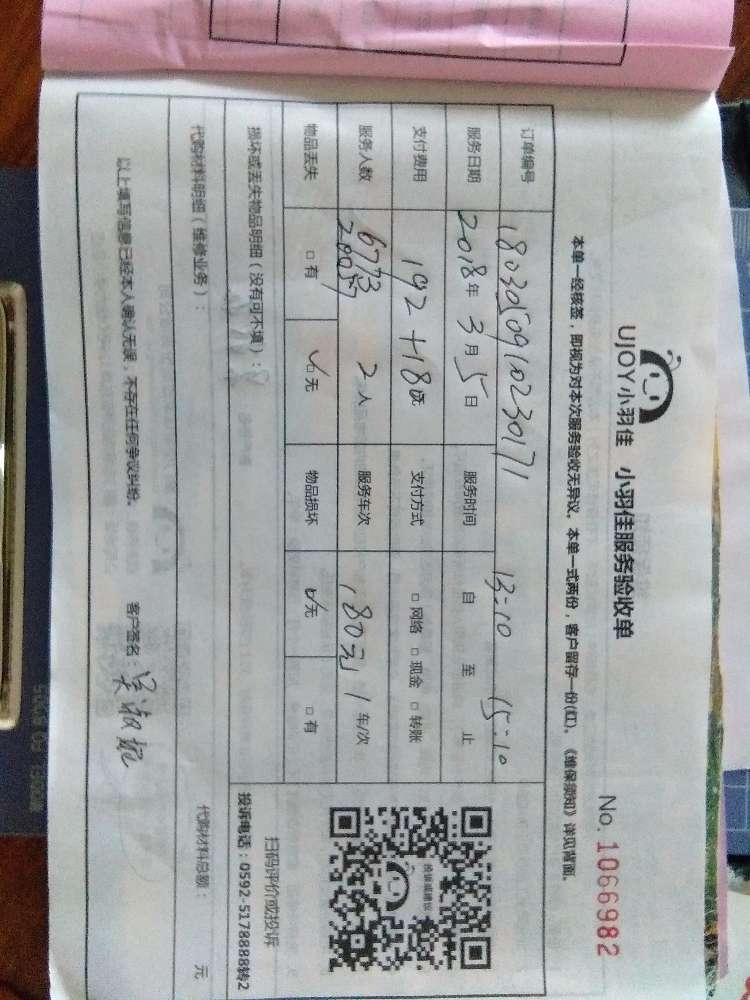 UJOY小羽佳 小羽佳服务验收单
No. 1066982
本单一经核签，即视为对本次服务验收无异议。本单一式两份，客户留存一份(红)。《维保须知》详见背面。
订单编号 1803050910230171
服务日期 2018年 3月 5日 服务时间 13:10 自 至 15:10 止
支付费用 192+18 支付方式 □网络 □现金 □转账
服务人数 6773 2人 服务车次 180元 1 车/次
物品丢失 □有 ✓□无 物品损坏 ✓□无 □有
损坏或丢失物品明细（没有可不填）：
代购材料明细（维修业务）：
代购材料总额： 元
以上填写信息已经本人确认无误，不存在任何争议纠纷。
客户签名：吴淑
投诉或建议
扫码评价或投诉
投诉电话：0592-5178888转2